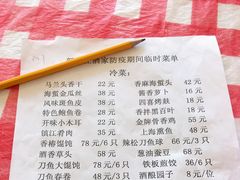 酒家防疫期间临时菜单
冷菜:
马兰头香干 22 元 香麻海蜇头 42 元
海蜇金瓜丝 38 元 酱香萝卜 16 元
风味斑鱼皮 38 元 四喜烤麸 18 元
特色鲍鱼卷 28 元 香拌黑百叶 18 元
开味小木耳 22 元 金牌曾香鸡 55 元
镇江肴肉 35 元 上海熏鱼 48 元
香椿馄饨 78 元/6 只 辣松刀鱼球 66元/ 只
酒香草头 58 元 葱油蚕豆 68 元
刀鱼大馄饨 78 元/6 只 铁板煎饺 36/6 只
刀鱼春卷 48 元/ 只 酒酿园子 8 元/位